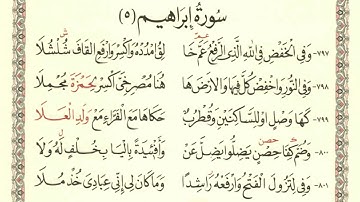 سُورَةُ إِبْرَاهِيم (٥)
٧٩٧- وَفِي الْخَفْضِ فِي اللَّهِ الَّذِي الرَّفْعُ عَمَّ خَا لِقُ امْدُدْهُ وَاكْسِرْ وَارْفَعِ الْقَافَ شُلْشُلَا
٧٩٨- وَفِي النُّورِ وَاخْفِضْ كُلَّ فِيهَا وَالْأَرْضَ هَا هُنَا مُصْرِخِيَّ اكْسِرْ لِحَمْزَةَ مُجْمِلَا
٧٩٩- كَهَا وَصْلٍ اوْ لِلسَّاكِنَيْنِ وَقُطْرُبٌ حَكَاهَا مَعَ الْفَرَّاءِ مَعْ وَلَدِ الْعَلَا
٨٠٠- وَضُمَّ كِفَا حِصْنٍ يَضِلُّوا يَضِلَّ عَنْ وَأَفْئِيدَةً بِالْيَا بِخُلْفٍ لَهُ وَلَا
٨٠١- وَفِي لِتَزُولَ الْفَتْحُ وَارْفَعْهُ رَاشِدًا وَمَا كَانَ لِي إِنِّي عِبَادِيَ خُذْ مُلَا